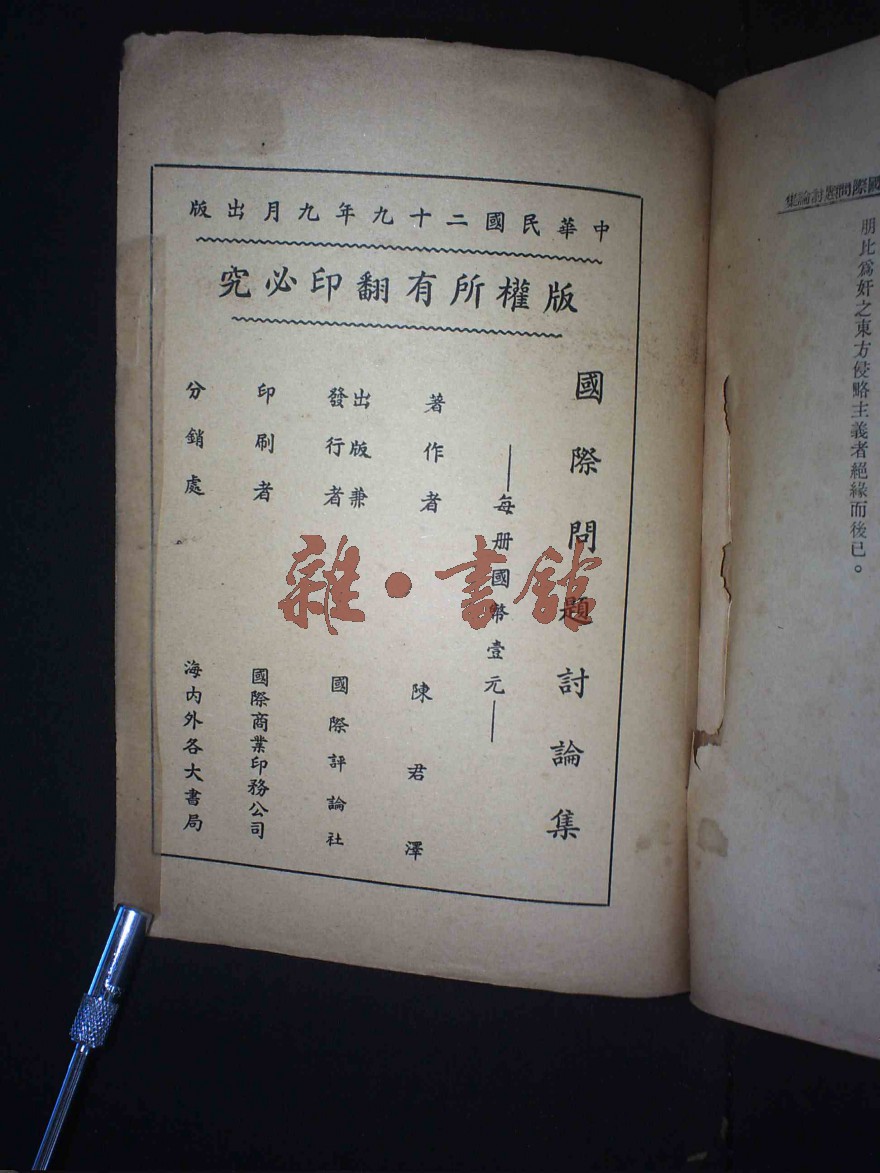 國際問題討論集
朋比爲奸之東方侵略主義者絕緣而後已。
中華民國二十九年九月出版
版權所有翻印必究
國際問題討論集
——每册國幣壹元——
著作者 陳君澤
出版兼
發行者 國際評論社
印刷者 國際商業印務公司
分銷處 海内外各大書局
雜·書館